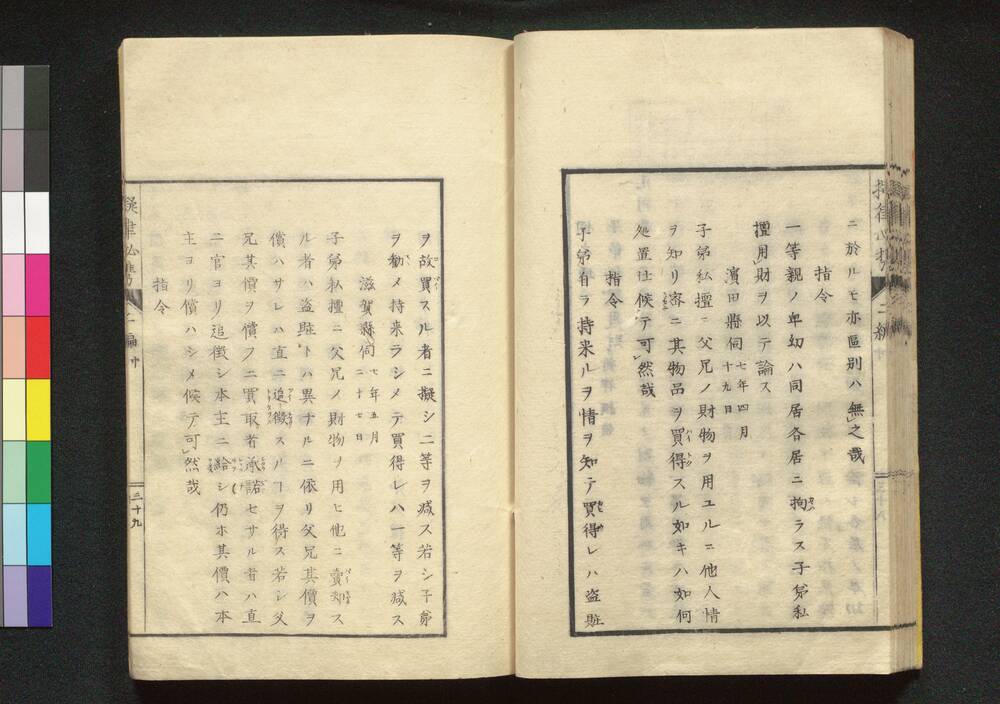 ニ於ルモ亦區別ハ無之哉
指令
一等親ノ卑幼ハ同居各居ニ拘ラス子弟私
擅用財ヲ以テ論ス
濱田縣伺 七年四月十九日
子弟私擅ニ父兄ノ財物ヲ用ユルニ他人情
ヲ知リ密ニ其物品ヲ買得スル如キハ如何
処置仕候テ可然哉
指令
子弟自ラ持来ルヲ情ヲ知テ買得レハ盗贓
ヲ故買スル者ニ擬シ二等ヲ减ス若シ子弟
ヲ勧メ持来ラシメテ買得レハ一等ヲ减ス
滋賀縣伺 七年五月二十七日
子弟私擅ニ父兄ノ財物ヲ用ヒ他ニ賣却ス
ル者ハ盗贓トハ異ナルニ依リ父兄其價ヲ
償ハサレハ直ニ追徴スルヿヲ得ス若シ父
兄其價ヲ償フニ買取者承諾セサル者ハ直
ニ官ヨリ追徴シ本主ニ給シ仍ホ其價ハ本
主ヨリ償ハシメ候テ可然哉
指令
三十九